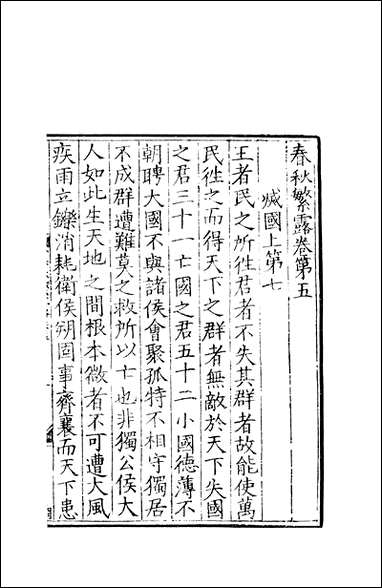 春秋繁露卷第五
滅國上第七
王者民之所徃君者不失其群者故能使萬
民徃之而得天下之群者無敵於天下失國
之君三十一亡國之君五十二小國德薄不
朝聘大國不與諸侯會聚孤特不相守獨居
不成群遭難莫之救所以亡也非獨公侯大
人如此生天地之間根本微者不可遭大風
疾雨立鑠消耗衛侯朔固事齊襄而天下患